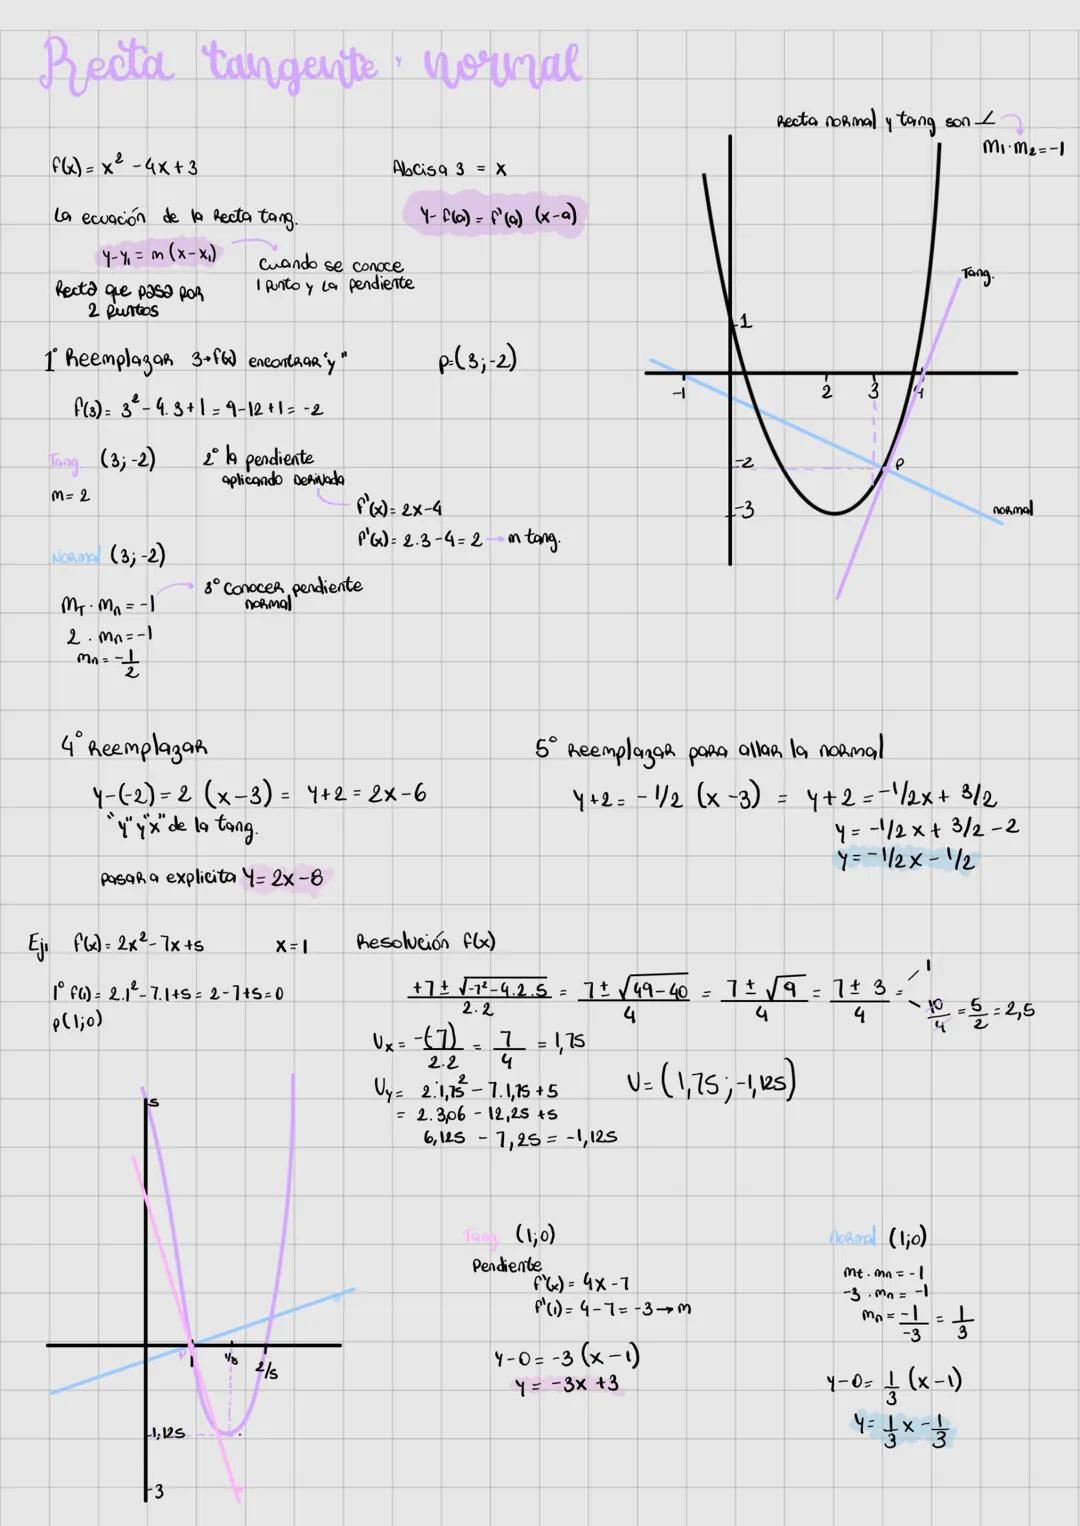 Recta tangente y normal
Recta normal y tang son ⊥
m₁·m₂=-1
f(x) = x² - 4x + 3
Abcisa 3 = x
La ecuación de la Recta tang.
y - f(a) = f'(a) (x-a)
y-y₁ = m (x-x₁)
Cuando se conoce
1 punto y la pendiente
Recta que pasa por
2 puntos
1° Reemplazar 3→f(x) encontrar "y"
p=(3;-2)
f(3) = 3² - 4.3 + 1 = 9-12+1 = -2
Tang (3;-2)
m= 2
2° la pendiente
aplicando Derivada
f'(x) = 2x-4
f'(x) = 2.3-4 = 2 → m tang.
Normal (3;-2)
3° Conocer pendiente
normal
mT . mn = -1
2 . mn = -1
mn = -1/2
Tang.
1
-1
2
3
4
-2
P
-3
normal
4° Reemplazar
y-(-2) = 2 (x-3) = y+2 = 2x-6
"y" y "x" de la tang.
pasar a explicita y = 2x-8
5° Reemplazar para allar la normal
y+2 = -1/2 (x-3) = y+2 = -1/2x + 3/2
y = -1/2 x + 3/2 - 2
y = -1/2 x - 1/2
Ej: f(x) = 2x² - 7x + 5
x = 1
1° f(1) = 2.1² - 7.1 + 5 = 2-7+5 = 0
p(1;0)
Resolución f(x)
+7 ± √-7²-4.2.5 / 2.2 = 7 ± √49-40 / 4 = 7 ± √9 / 4 = 7 ± 3 / 4 =
1
10/4 = 5/2 = 2,5
Vx = -(-7)/2.2 = 7/4 = 1,75
Vy = 2.1,75² - 7.1,75 + 5
= 2.3,06 - 12,25 + 5
6,125 - 7,25 = -1,125
V = (1,75 ; -1,125)
5
P
1
2/5
-1,125
-3
Tang (1;0)
Pendiente
f'(x) = 4x-7
f'(1) = 4-7 = -3 → m
y-0 = -3 (x-1)
y = -3x + 3
Normal (1;0)
mt . mn = -1
-3 . mn = -1
mn = -1/-3 = 1/3
y-0 = 1/3 (x-1)
y = 1/3 x - 1/3